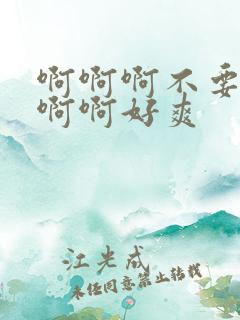 啊啊啊不要
啊啊好爽
江光成
未经同意禁止转载